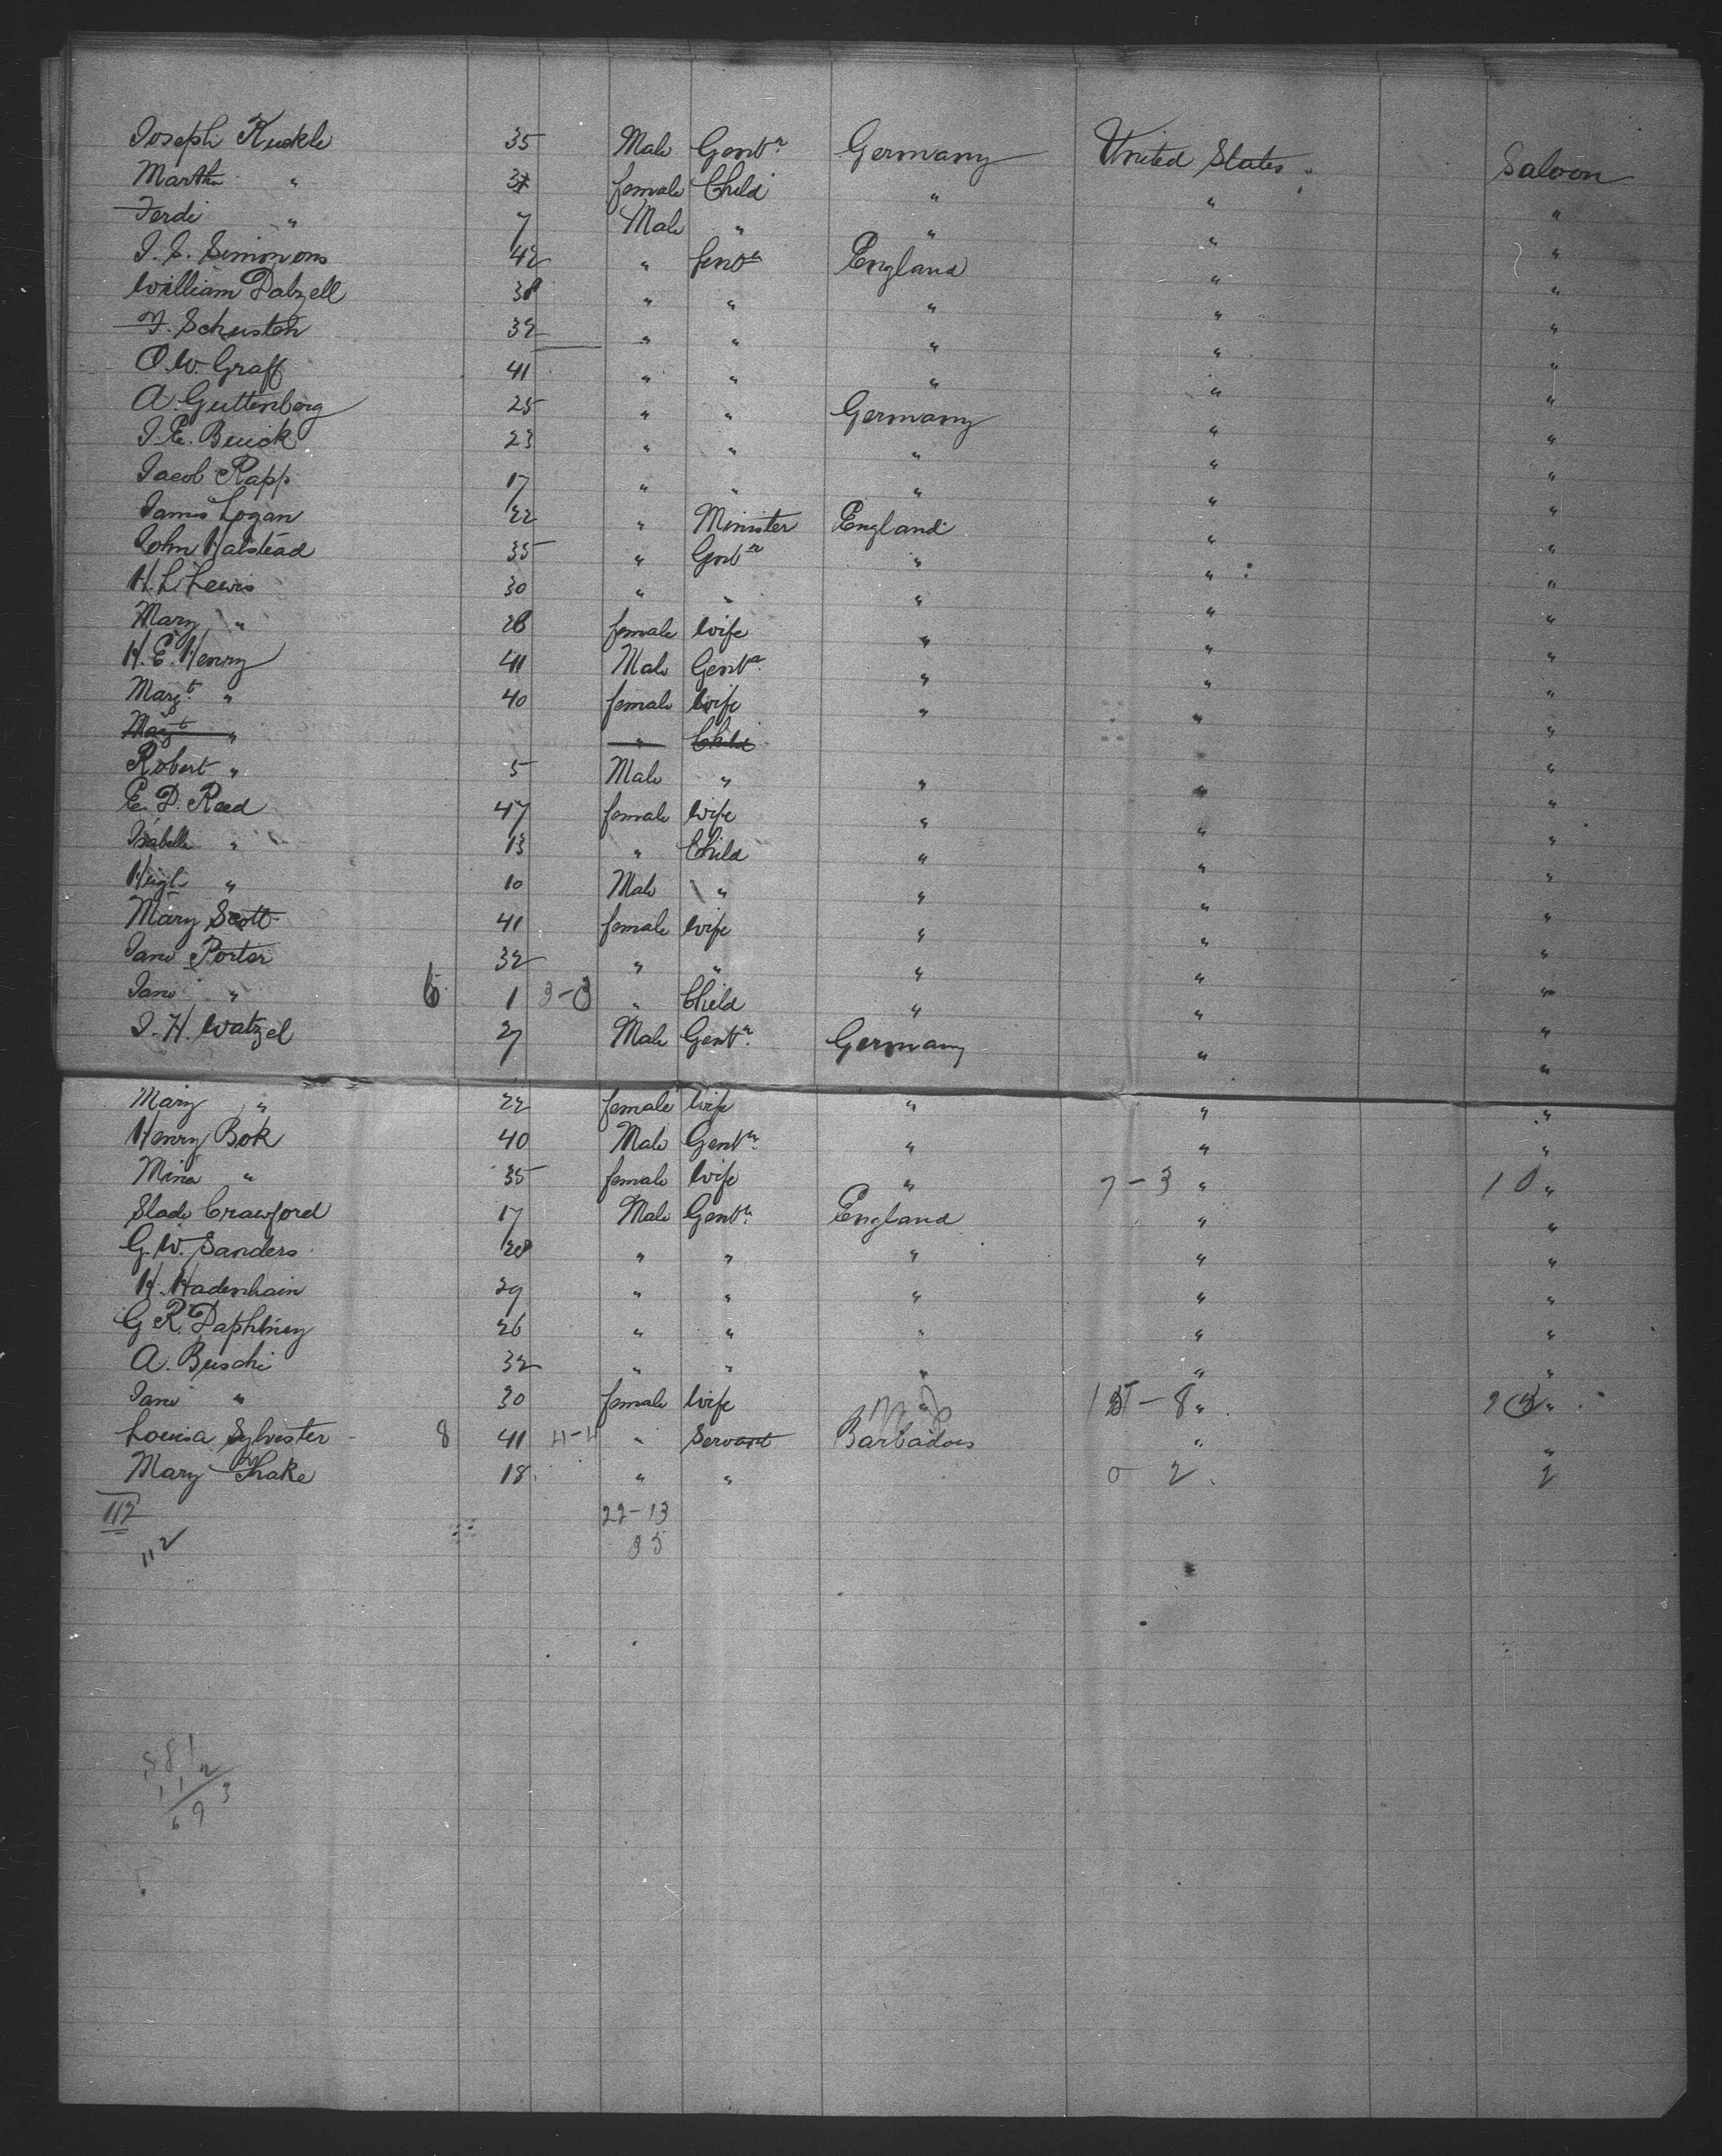 Joseph Kuskle 35 Male Gentn Germany United States Saloon
Martha " 31 female Child " " "
Ferdi " 7 Male " " " "
J. S. Simmons 42 " Gentn England " "
William Dalzell 38 " " " " "
F. Schusten 32 " " " " "
O. W. Graff 41 " " " " "
A. Guttenberg 25 " " Germany " "
J. E. Buick 23 " " " " "
Jacob Rapp 17 " " " " "
James Logan 22 " Minister England " "
John Halstead 35 " Gentn " " "
H. L. Lewis 30 " " " " "
Mary " 28 female Wife " " "
H. E. Henry 41 Male Gentn " " "
Margt " 40 female Wife " " "
Margt " " Child "
Robert " 5 Male " " " "
E. D. Reed 47 female Wife " " "
Isabella " 13 " Child " " "
Hugh " 10 Male " " " "
Mary Scott 41 female Wife " " "
Jane Porter 32 " " " " "
Jane " 6 1 3-3 " Child " " "
J. H. Watzel 27 Male Gentn Germany " "
Mary " 22 female Wife " " "
Henry Bok 40 Male Gentn " " "
Mina " 35 female Wife " 7-3 " 10 "
Slade Crawford 17 Male Gentn England " "
G. W. Sanders 28 " " " " "
H. Hadenhain 29 " " " " "
G R. Daphiney 26 " " " " "
A. Buschi 32 " " " " "
Jane " 30 female Wife " 15-8 " 23 "
Louisa Sylvester 8 41 4-4 " Servant Barbadoes " "
Mary Thake 18 " " 0 2 2
112 22-13
112 35
581
112
693